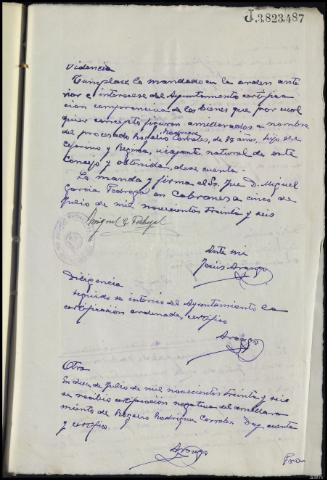 J.3823487
Videncia
Cumplase lo mandado en la orden ante
rior e interesese del Ayuntamiento certifica
ción comprensiva de los bienes que por cual
quier concepto figuren amillarados a nombre
del procesado Rogelio Rodriguez Corrales, de 18 años, hijo de
y natural de este
Concejo y obtenida, dese cuenta.
Lo manda y firma el Sr. Juez D. Miguel
García en Cabranes a cinco de
Julio de mil novecientos treinta y seis
Miguel G.
Ante mi
Jesús Arango
Diligencia
Seguido se interesó del Ayuntamiento la
certificación ordenada, certifico
Arango
Otra
En diez de Julio de mil novecientos treinta y seis
se recibio certificación negativa del amillara
miento de Rogelio Rodriguez Corrales Doy cuenta
y certifico.
Arango